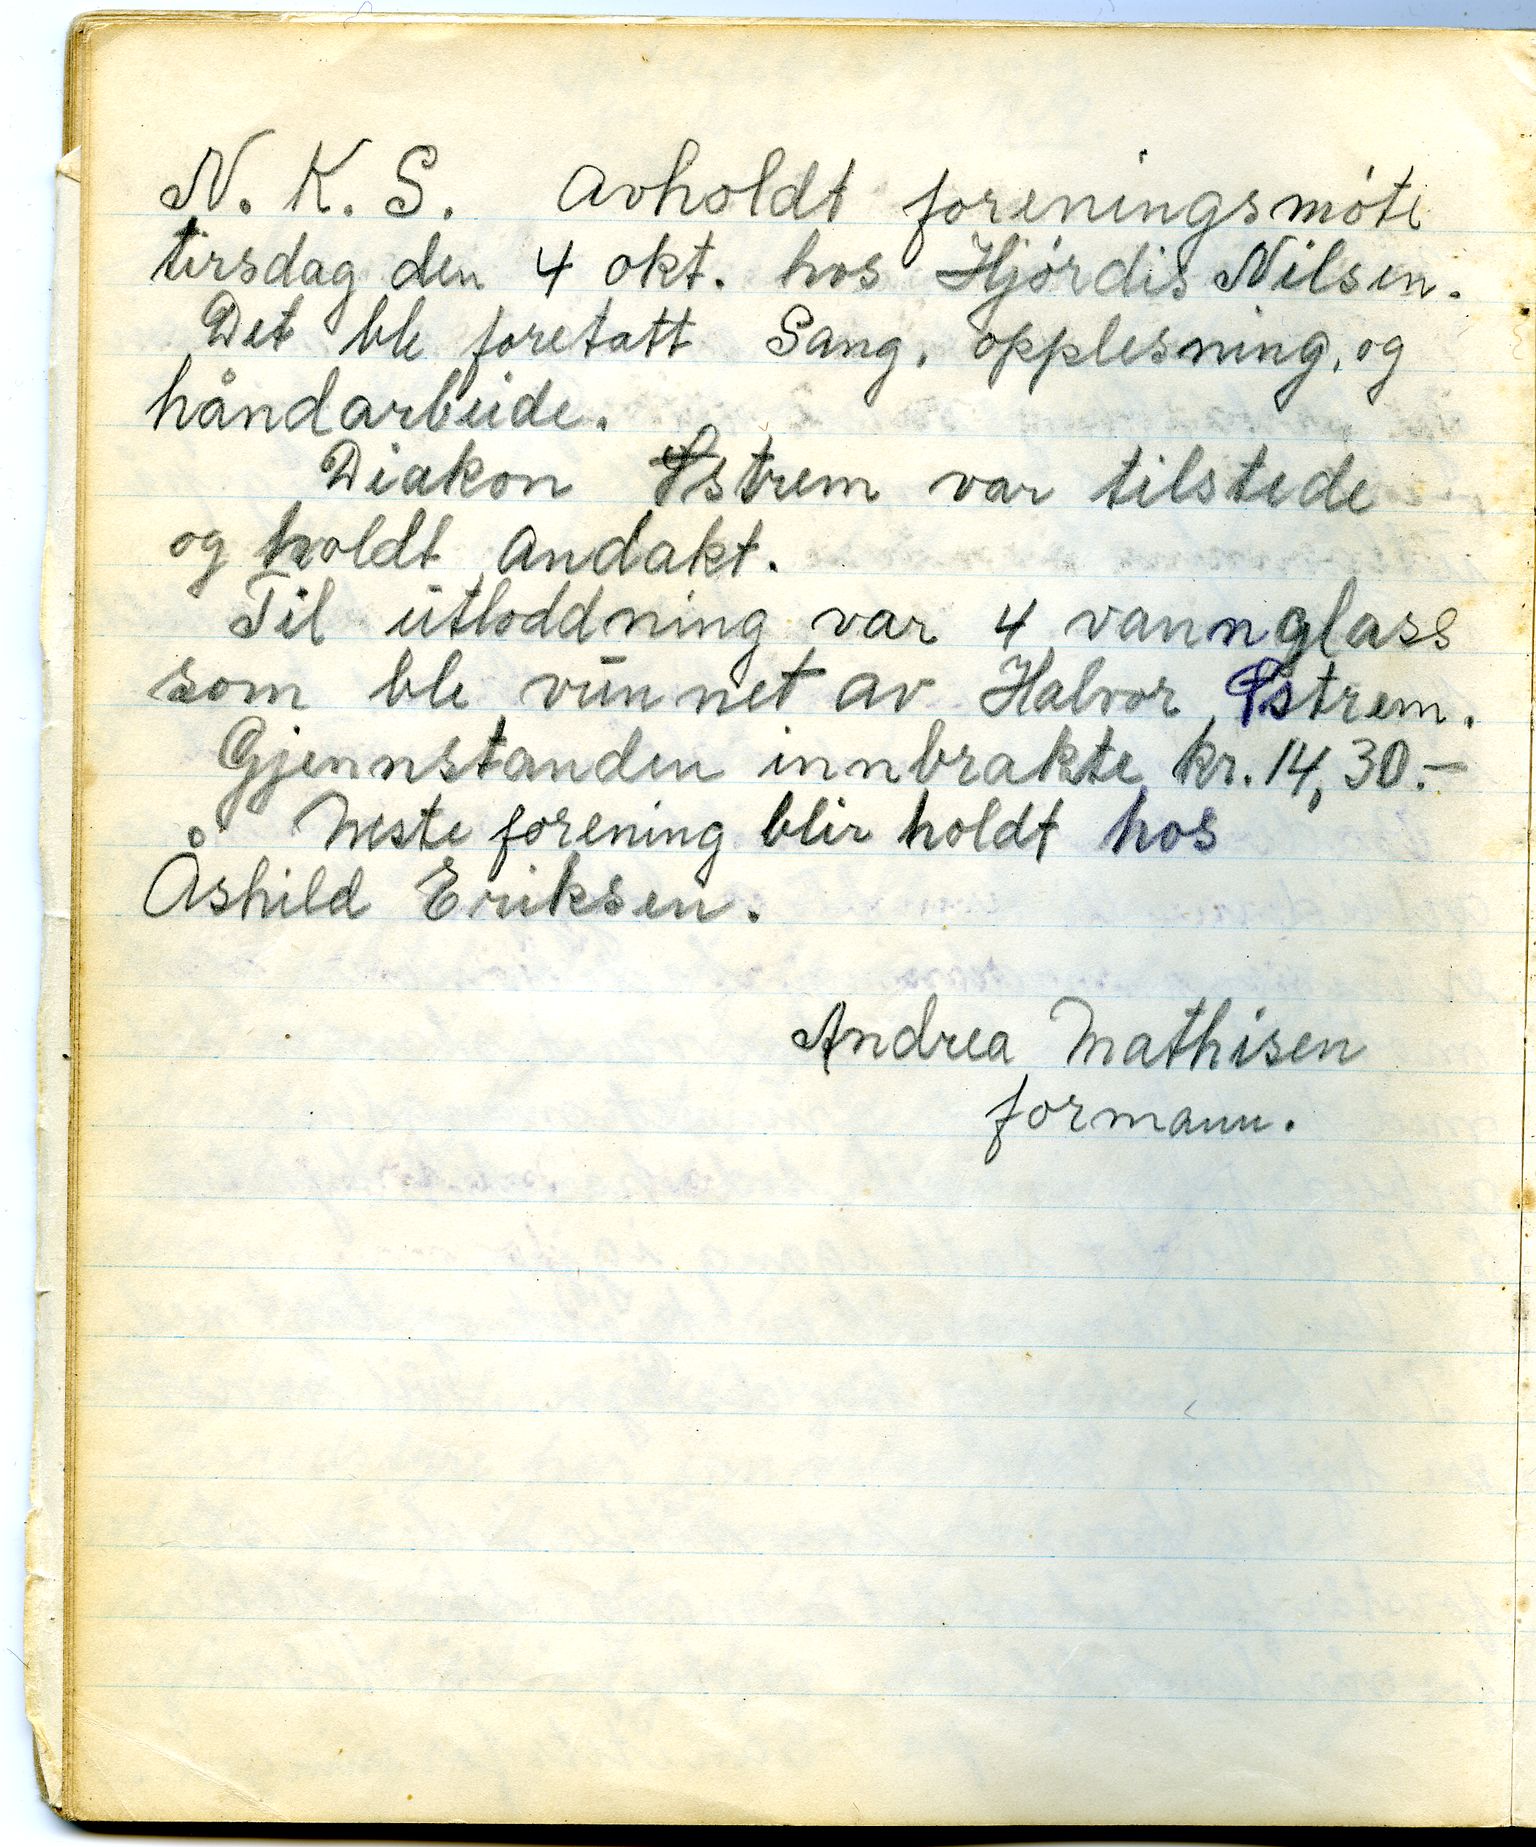 N. K. S. Avholdt foreningsmóte
tirsdag den 4 okt. hos Hjórdis Nilsen.
Det ble foretatt Sang. opplesning, og
håndarbeide.
Diakon Østrem var tilstede
og holdt andakt.
Til utloddning var 4 vannglass
som ble vunnet av Halvor Østrem.
Gjennstanden innbrakte kr. 14,30.-
Neste forening blir holdt hos
Åshild Eriksen.
Andrea Mathisen
formann.